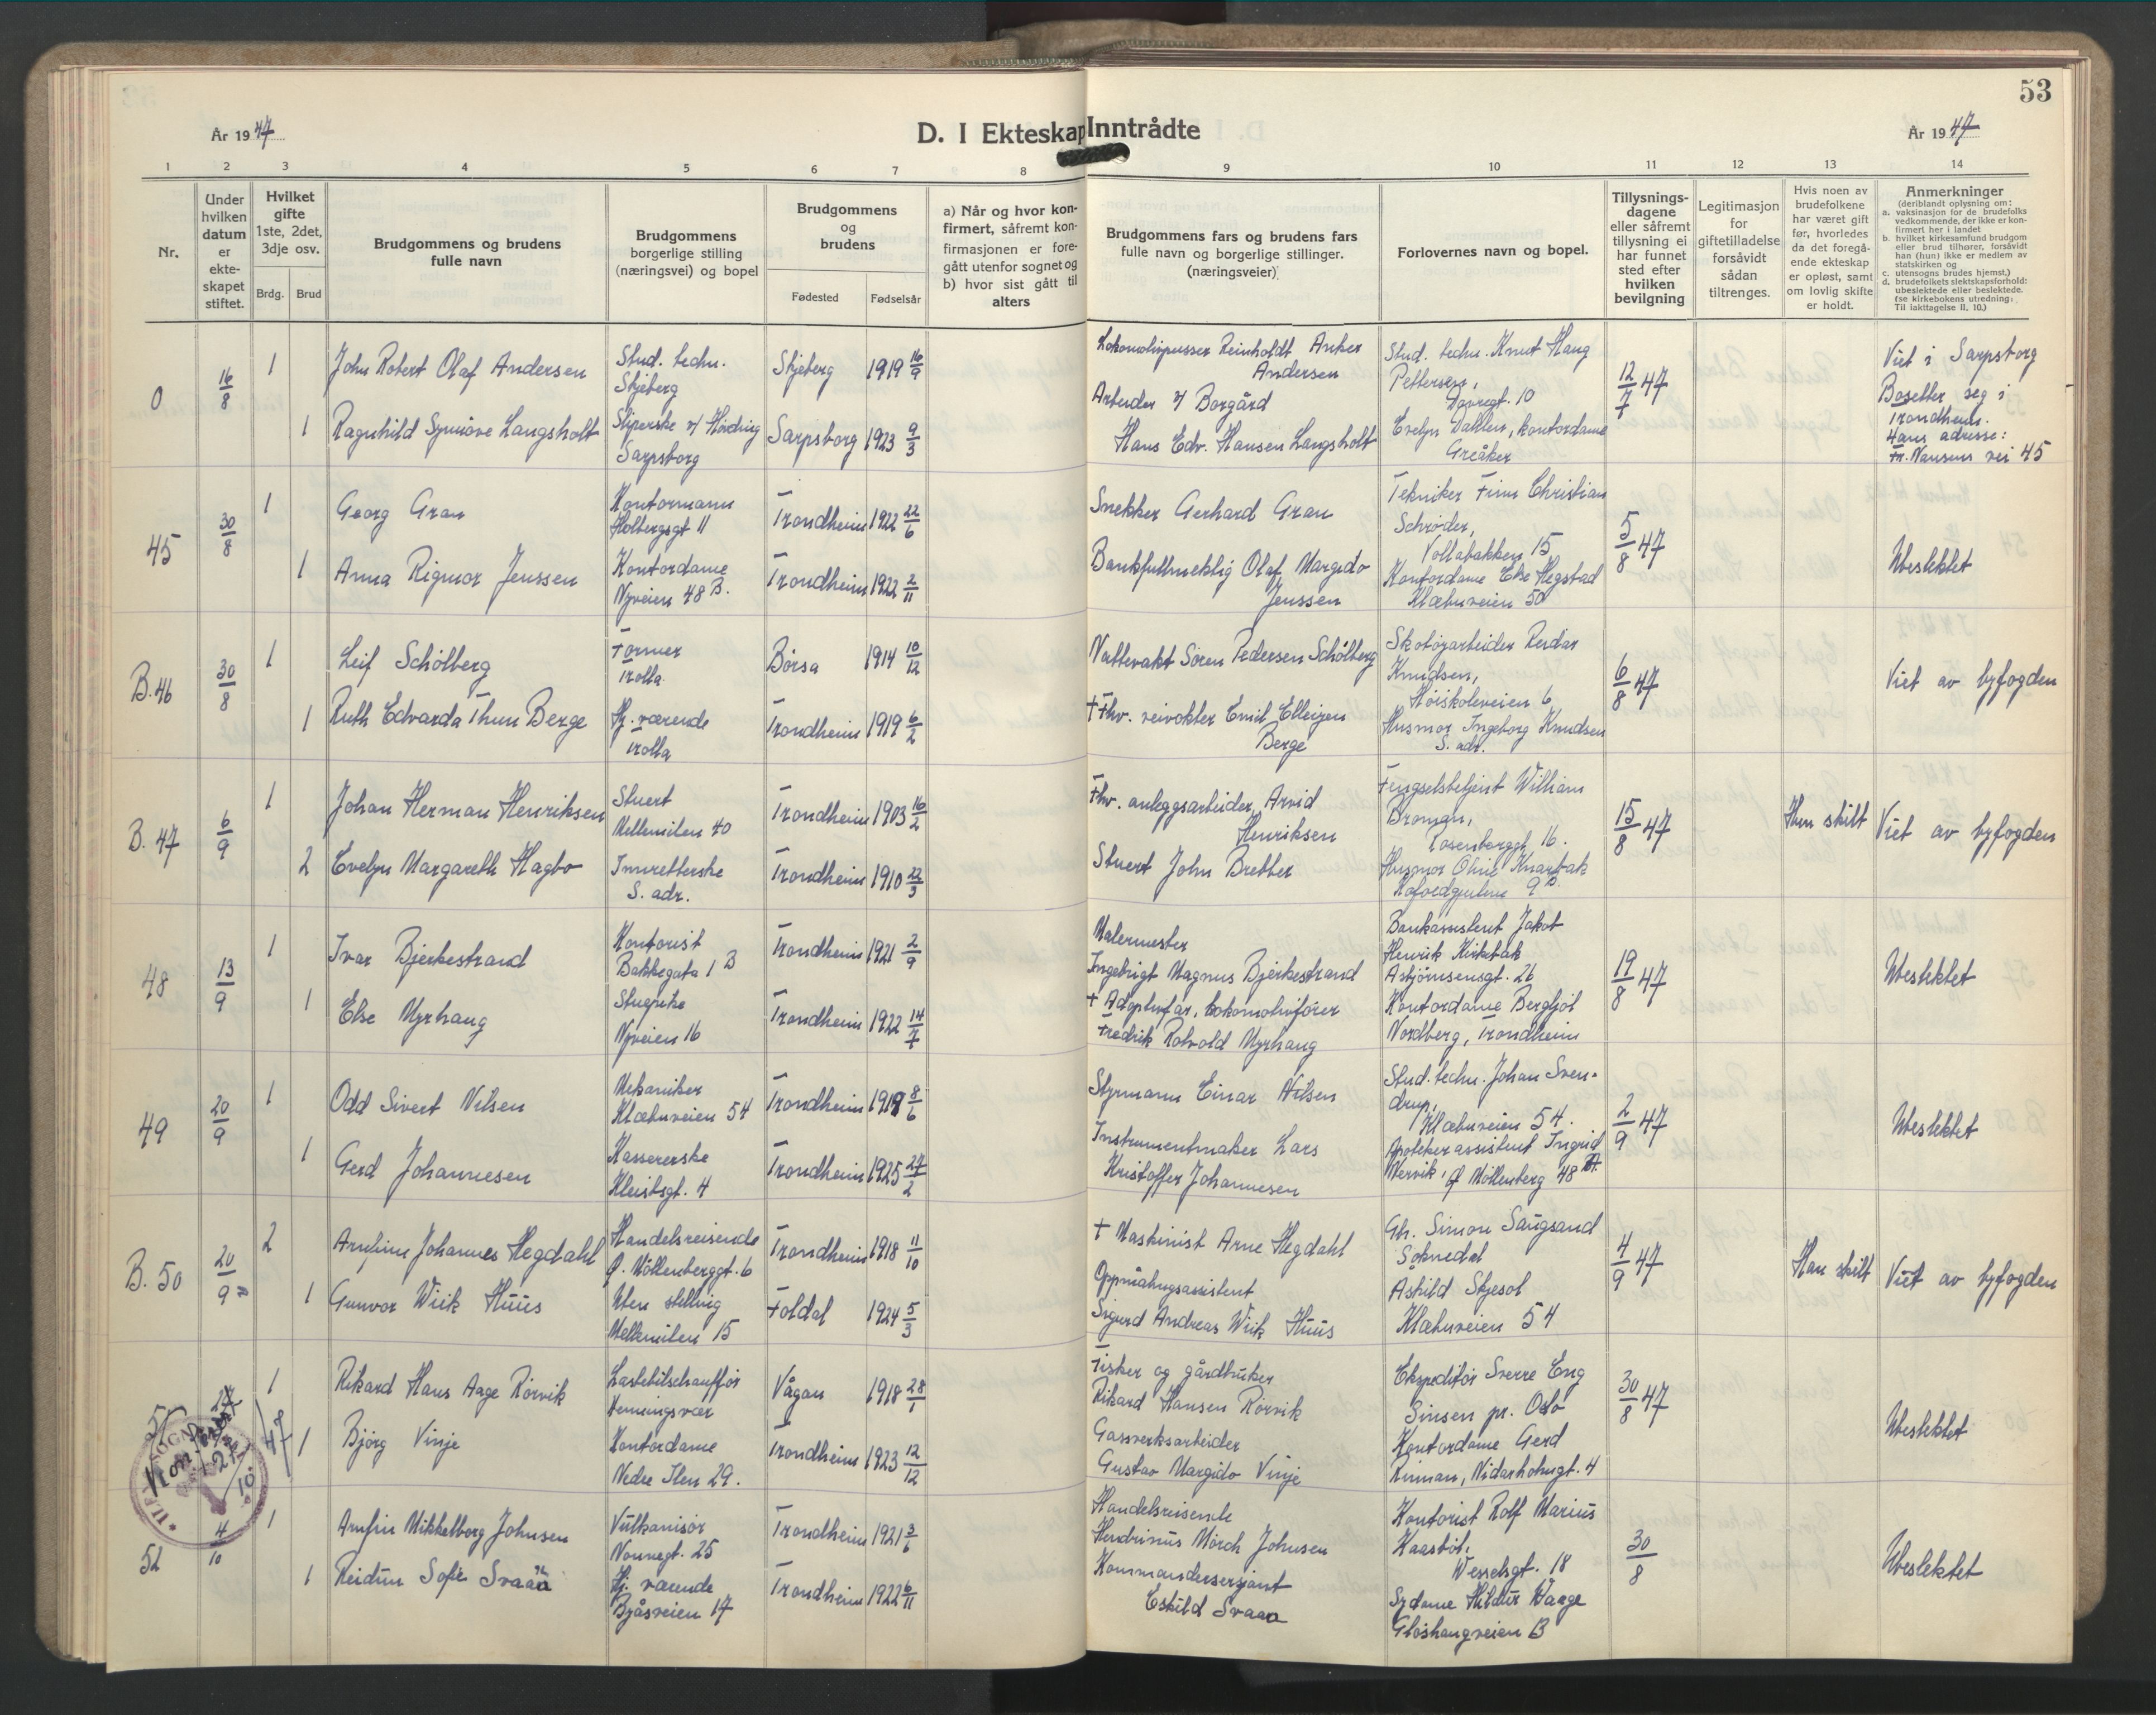 53
År 1947
D. I Ekteskap Inntrådte
År 1947
1 2 3 4 5 6 7 8 9 10 11 12 13 14
Nr.
Under hvilken datum er ekte-skapet stiftet.
Hvilket gifte 1ste, 2det, 3dje osv.
Brdg. Brud
Brudgommens og brudens fulle navn
Brudgommens borgerlige stilling (næringsvei) og bopel
Brudgommens og brudens
Fødested Fødselsår
a) Når og hvor kon-firmert, såfremt kon-firmasjonen er fore-gått utenfor sognet og
b) hvor sist gått til alters
Brudgommens fars og brudens fars fulle navn og borgerlige stillinger. (næringsveier)
Forlovernes navn og bopel.
Tillysnings-dagene eller såfremt tillysning ei har funnet sted efter hvilken bevilgning
Legitimasjon for giftetilladelse forsåvidt sådan tiltrenges.
Hvis noen av brudefolkene har været gift før, hvorledes da det foregå-ende ekteskap er opløst, samt om lovlig skifte er holdt.
Anmerkninger
(deriblandt oplysning om:
a. vaksinasjon for de brudefolks vedkommende, der ikke er kon-firmert her i landet
b. hvilket kirkesamfund brudgom eller brud tilhører, forsåvidt han (hun) ikke er medlem av statskirken og
c. utensogns brudes hjemst.)
d. brudefolkets slektskapsforhold: ubeslektede eller beslektede. (se kirkebokens utredning: Til iakttagelse II. 10.)
0 16/8 1 John Robert Olaf Andersen Stud. techn. Skjeberg Skjeberg 1919 16/9
1 Ragnhild Synnøve Langsholt Sarpsborg Sarpsborg 1923 9/3
Lokomotivpusser Reinholdt Anker Andersen
Arbeider v/ Borgård Hans Edv. Hansen Langsholt
Stud. techn. Knut Haug Pettersen, Dovregt. 10
Evelyn Dahlen, kontordame Greåker
12/7 47
Viet i Sarpsborg
Bosetter seg i Trondheim.
Hans adresse:
Fr. Nansens vei 45
45 30/8 1 Georg Gran Kontormann Holbergsgt 11 Trondheim 1922 22/6
1 Anna Rigmor Jenssen Kontordame Nyveien 48 B. Trondheim 1922 2/11
Snekker Gerhard Gran
Bankfullmektig Olaf Margido Jenssen
Tekniker Finn Christian Schrøder, Vollabakken 15
Kontordame Else Hegstad Klæbuveien 50
5/8 47
Ubeslektet
B. 46 30/8 1 Leif Schølberg Former Trolla Børsa 1914 10/12
1 Ruth Edvarda Thun Berge Hj. værende Trolla Trondheim 1919 6/2
Nattevakt Søren Pedersen Schølberg
† Fhv. veivokter Emil Elleigen Berge
Skotøyarbeider Reidar Knudsen, Høiskoleveien 6
Husmor Ingeborg Knudsen S. adr.
6/8 47
Viet av byfogden
B. 47 6/9 1 Johan Herman Henriksen Stuert Mellemilen 40 Trondheim 1903 16/2
2 Evelyn Margareth Hagbo Innretterske S. adr. Trondheim 1910 22/3
Fhv. anleggsarbeider Arvid Henriksen
Stuert John Bretter
Fengselsbetjent William Broman, Rosenborggt 16.
Husmor Oline
15/8 47
Hun skilt
Viet av byfogden
48 13/9 1 Ivar Bjerkestrand Kontorist Bakkegata 1 B Trondheim 1921 2/9
1 Else Myrhaug Nyveien 16 Trondheim 1922 14/7
Malermester Ingebrigt Magnus Bjerkestrand
† Adoptivfar, lokomotivfører Fredrik Rolvold Myrhaug
Bankassistent Jakob Henrik Kirkbak Asbjørnsensgt. 26
Kontordame Bergljot Nordberg, Trondheim
19/8 47
Ubeslektet
49 20/9 1 Odd Sivert Nilsen Mekaniker Klæbuveien 54 Trondheim 1919 8/6
1 Gerd Johannesen Kassererske Kleistsgt. 4 Trondheim 1925 27/2
Styrmann Einar Nilsen
Instrumentmaker Lars Kristoffer Johannesen
Stud. techn. Johan Svendrup, Klæbuveien 54.
Apotekerassistent Ingrid Mervik, Ø Møllenberg 48 A.
2/9 47
Ubeslektet
B. 50 20/9 2 Arnfinn Johannes Hegdahl Handelsreisende Ø. Møllenberggt. 6 Trondheim 1918 11/10
1 Gunvor Wiik Huus Uten stilling Mellemilen 15 Foldal 1924 5/3
† Maskinist Arne Hegdahl
Oppmålingsassistent Sigurd Andreas Wiik Huus
Gb. Simon Saugsand Soknedal
Askild Skjesol Klæbuveien 54
4/9 47
Han skilt
Viet av byfogden
51 27/9 47 1 Rikard Hans Aage Rørvik Lastebilschauffør Henningsvær Vågan 1918 28/1
1 Bjørg Vinje Kontordame Nedre Ilen 29. Trondheim 1923 12/12
Fisker og gårdbruker Rikard Hansen Rørvik
Gassverksarbeider Gustav Margido Vinje
Ekspeditør Sverre Eng Sinsen pr. Oslo
Kontordame Gerd Rinnan, Nidarholmgt. 4
30/8 47
Ubeslektet
52 4/10 1 Arnfin Mikkelborg Johnsen Vulkanisør Nonnegt. 25 Trondheim 1921 3/6
1 Reidun Sofie Svaan Hj. værende Byåsveien 17 Trondheim 1922 6/11
Handelsreisende Hendrinus Mørch Johnsen
Kommandersersjant Eskild Svaan
Kontorist Rolf Marius Kaasbøl, Wesselsgt. 18
Sydame Hildur Waage Gløshaugveien B
30/8
Ubeslektet